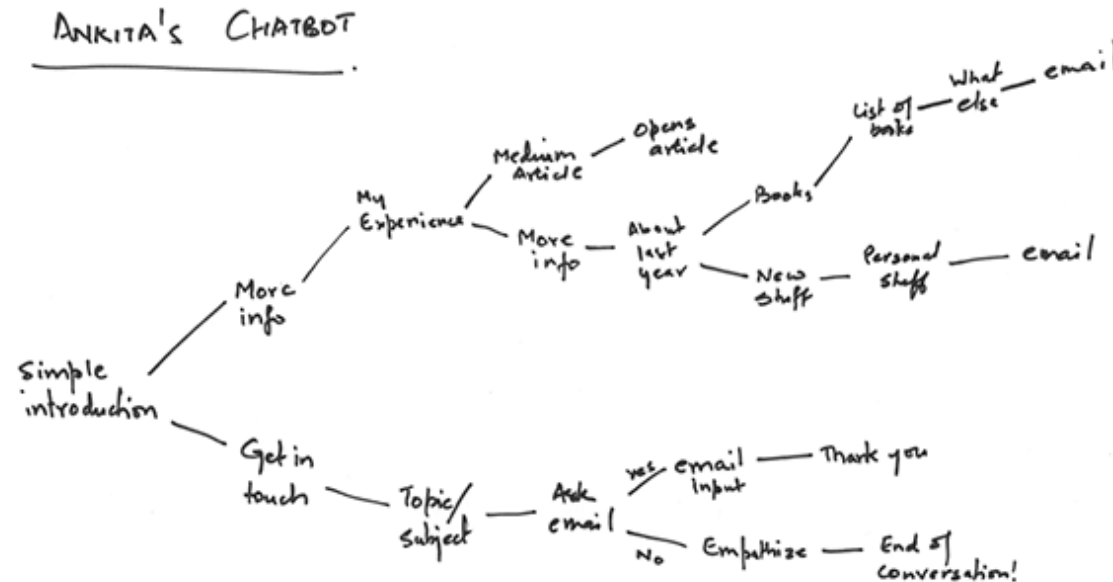 ANKITA'S CHATBOT
Simple
introduction
More
info
My
Experience
Medium
Article
Opens
article
More
info
About
last
year
Books
List of
books
What
else
email
New
stuff
Personal
stuff
email
Get in
touch
Topic/
subject
Ask
email
yes
email
input
Thank you
No
Empathize
End of
conversation!